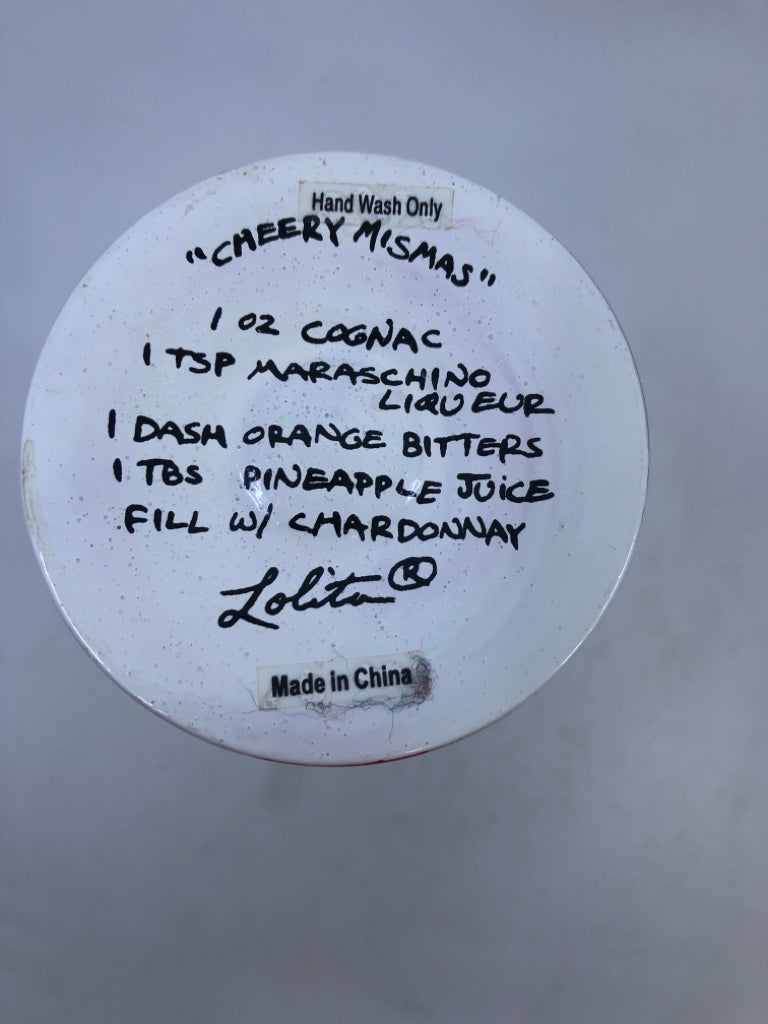 Hand Wash Only
"CHEERY MISMAS"
1 OZ COGNAC
1 TSP MARASCHINO
LIQUEUR
1 DASH ORANGE BITTERS
1 TBS PINEAPPLE JUICE
FILL W/ CHARDONNAY
Lolita®
Made in China